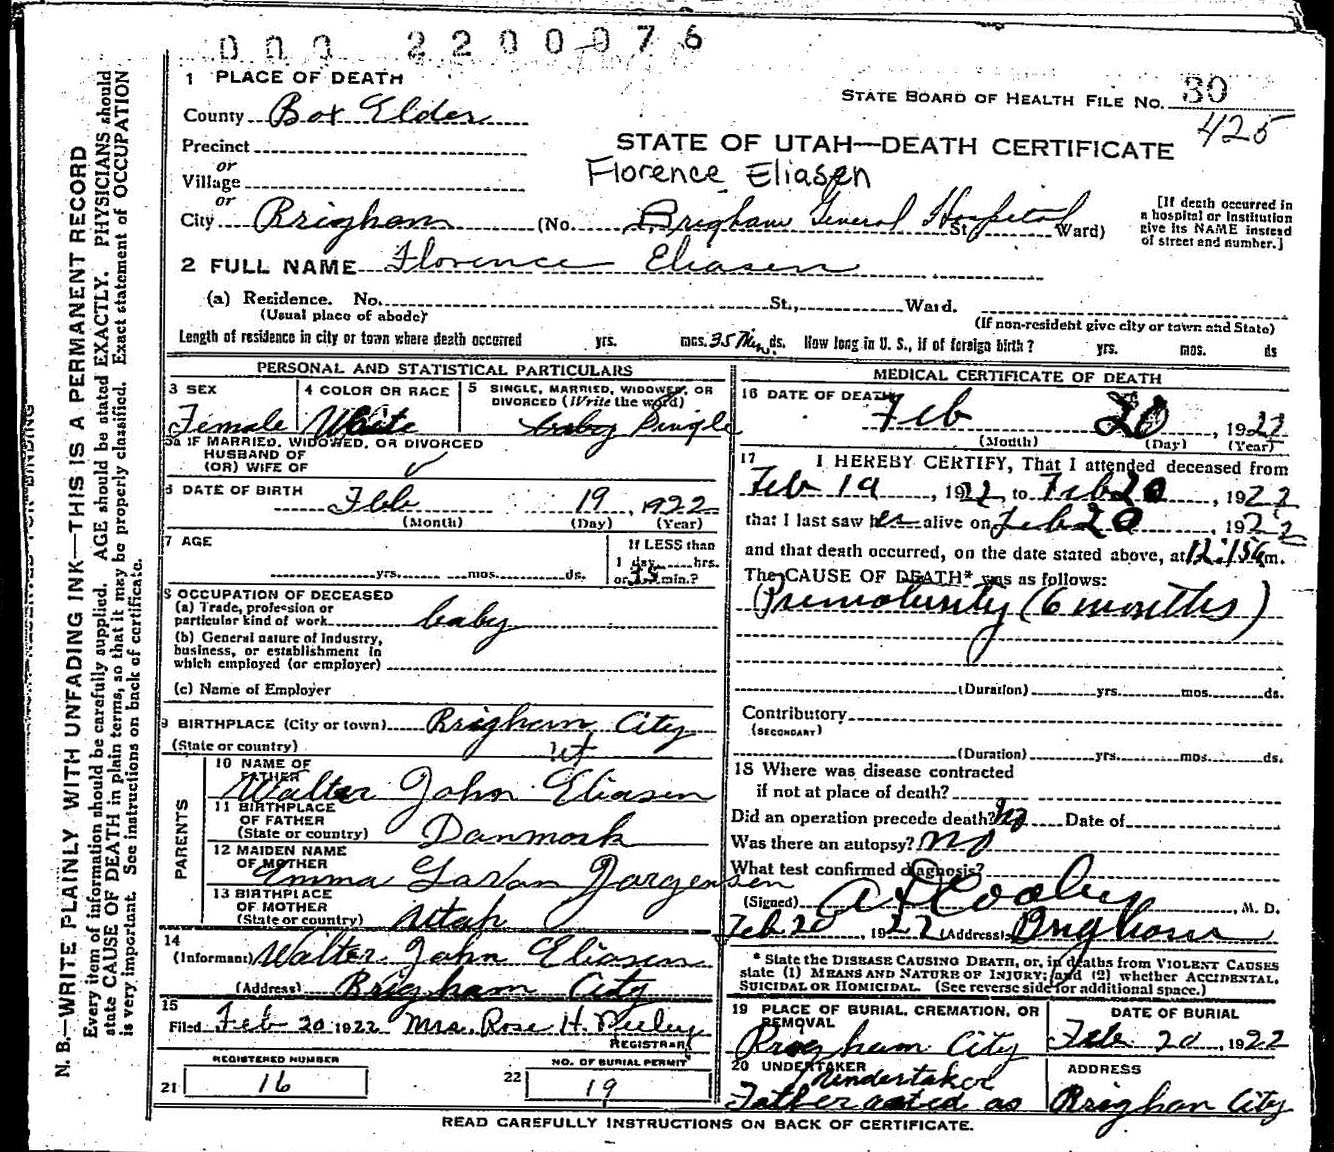 000 2200076
1 PLACE OF DEATH
STATE BOARD OF HEALTH FILE NO. 30
County Box Elder
425
STATE OF UTAH—DEATH CERTIFICATE
Precinct
or
Florence Eliasen
Village
or
City Brigham (No. Brigham General Hospital St., Ward)
[If death occurred in
a hospital or institution
give its NAME instead
of street and number.]
2 FULL NAME Florence Eliasen
(a) Residence. No. St., Ward.
(Usual place of abode)
(If non-resident give city or town and State)
Length of residence in city or town where death occurred yrs. mos. 35 Min ds. How long in U. S., if of foreign birth? yrs. mos. ds
PERSONAL AND STATISTICAL PARTICULARS
3 SEX
Female
4 COLOR OR RACE
White
5 SINGLE, MARRIED, WIDOWED, OR
DIVORCED (Write the word)
baby Single
5a IF MARRIED, WIDOWED, OR DIVORCED
HUSBAND OF
(OR) WIFE OF
6 DATE OF BIRTH Feb 19, 1922
(Month) (Day) (Year)
7 AGE
yrs. mos. ds.
If LESS than
1 day hrs.
or 35 min.?
8 OCCUPATION OF DECEASED
(a) Trade, profession or
particular kind of work baby
(b) General nature of Industry,
business, or establishment in
which employed (or employer)
(c) Name of Employer
9 BIRTHPLACE (City or town) Brigham City
(State or country) Ut
PARENTS
10 NAME OF
FATHER
Walter John Eliasen
11 BIRTHPLACE
OF FATHER
(State or country) Danmark
12 MAIDEN NAME
OF MOTHER
Emma Jorgensen
13 BIRTHPLACE
OF MOTHER
(State or country) Utah
14
(Informant) Walter John Eliasen
(Address) Brigham City
15
Filed Feb 20 1922 Mrs. Rose H.
REGISTRAR
REGISTERED NUMBER
21 16
NO. OF BURIAL PERMIT
22 19
MEDICAL CERTIFICATE OF DEATH
16 DATE OF DEATH Feb 20, 1922
(Month) (Day) (Year)
17 I HEREBY CERTIFY, That I attended deceased from
Feb 19, 1922 to Feb 20, 1922
that I last saw her alive on Feb 20, 1922
and that death occurred, on the date stated above, at 12:15 a m.
The CAUSE OF DEATH* was as follows:
Prematurity (6 months)
(Duration) yrs. mos. ds.
Contributory
(SECONDARY)
(Duration) yrs. mos. ds.
18 Where was disease contracted
if not at place of death?
Did an operation precede death? No Date of
Was there an autopsy? no
What test confirmed diagnosis?
(Signed) A D Cooley, M. D.
Feb 20 1922 (Address) Brigham
* State the DISEASE CAUSING DEATH, or, in deaths from VIOLENT CAUSES
state (1) MEANS AND NATURE OF INJURY; and (2) whether ACCIDENTAL,
SUICIDAL OR HOMICIDAL. (See reverse side for additional space.)
19 PLACE OF BURIAL, CREMATION, OR
REMOVAL
Brigham City
DATE OF BURIAL
Feb 20, 1922
20 UNDERTAKER
Undertaker
Father acted as
ADDRESS
Brigham City
READ CAREFULLY INSTRUCTIONS ON BACK OF CERTIFICATE.
N. B.—WRITE PLAINLY WITH UNFADING INK—THIS IS A PERMANENT RECORD
Every item of information should be carefully supplied. AGE should be stated EXACTLY. PHYSICIANS should
state CAUSE OF DEATH in plain terms, so that it may be properly classified. Exact statement of OCCUPATION
is very important. See instructions on back of certificate.